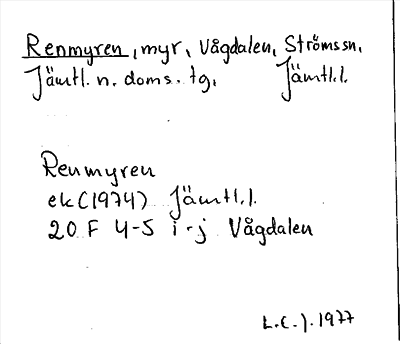 Renmyren, myr, Vågdalen, Strömssn,
Jämtl. n. doms. tg, Jämtl.l.
Renmyren
ek (1974) Jämtl.l.
20 F 4-5 i-j Vågdalen
L.C.J. 1977